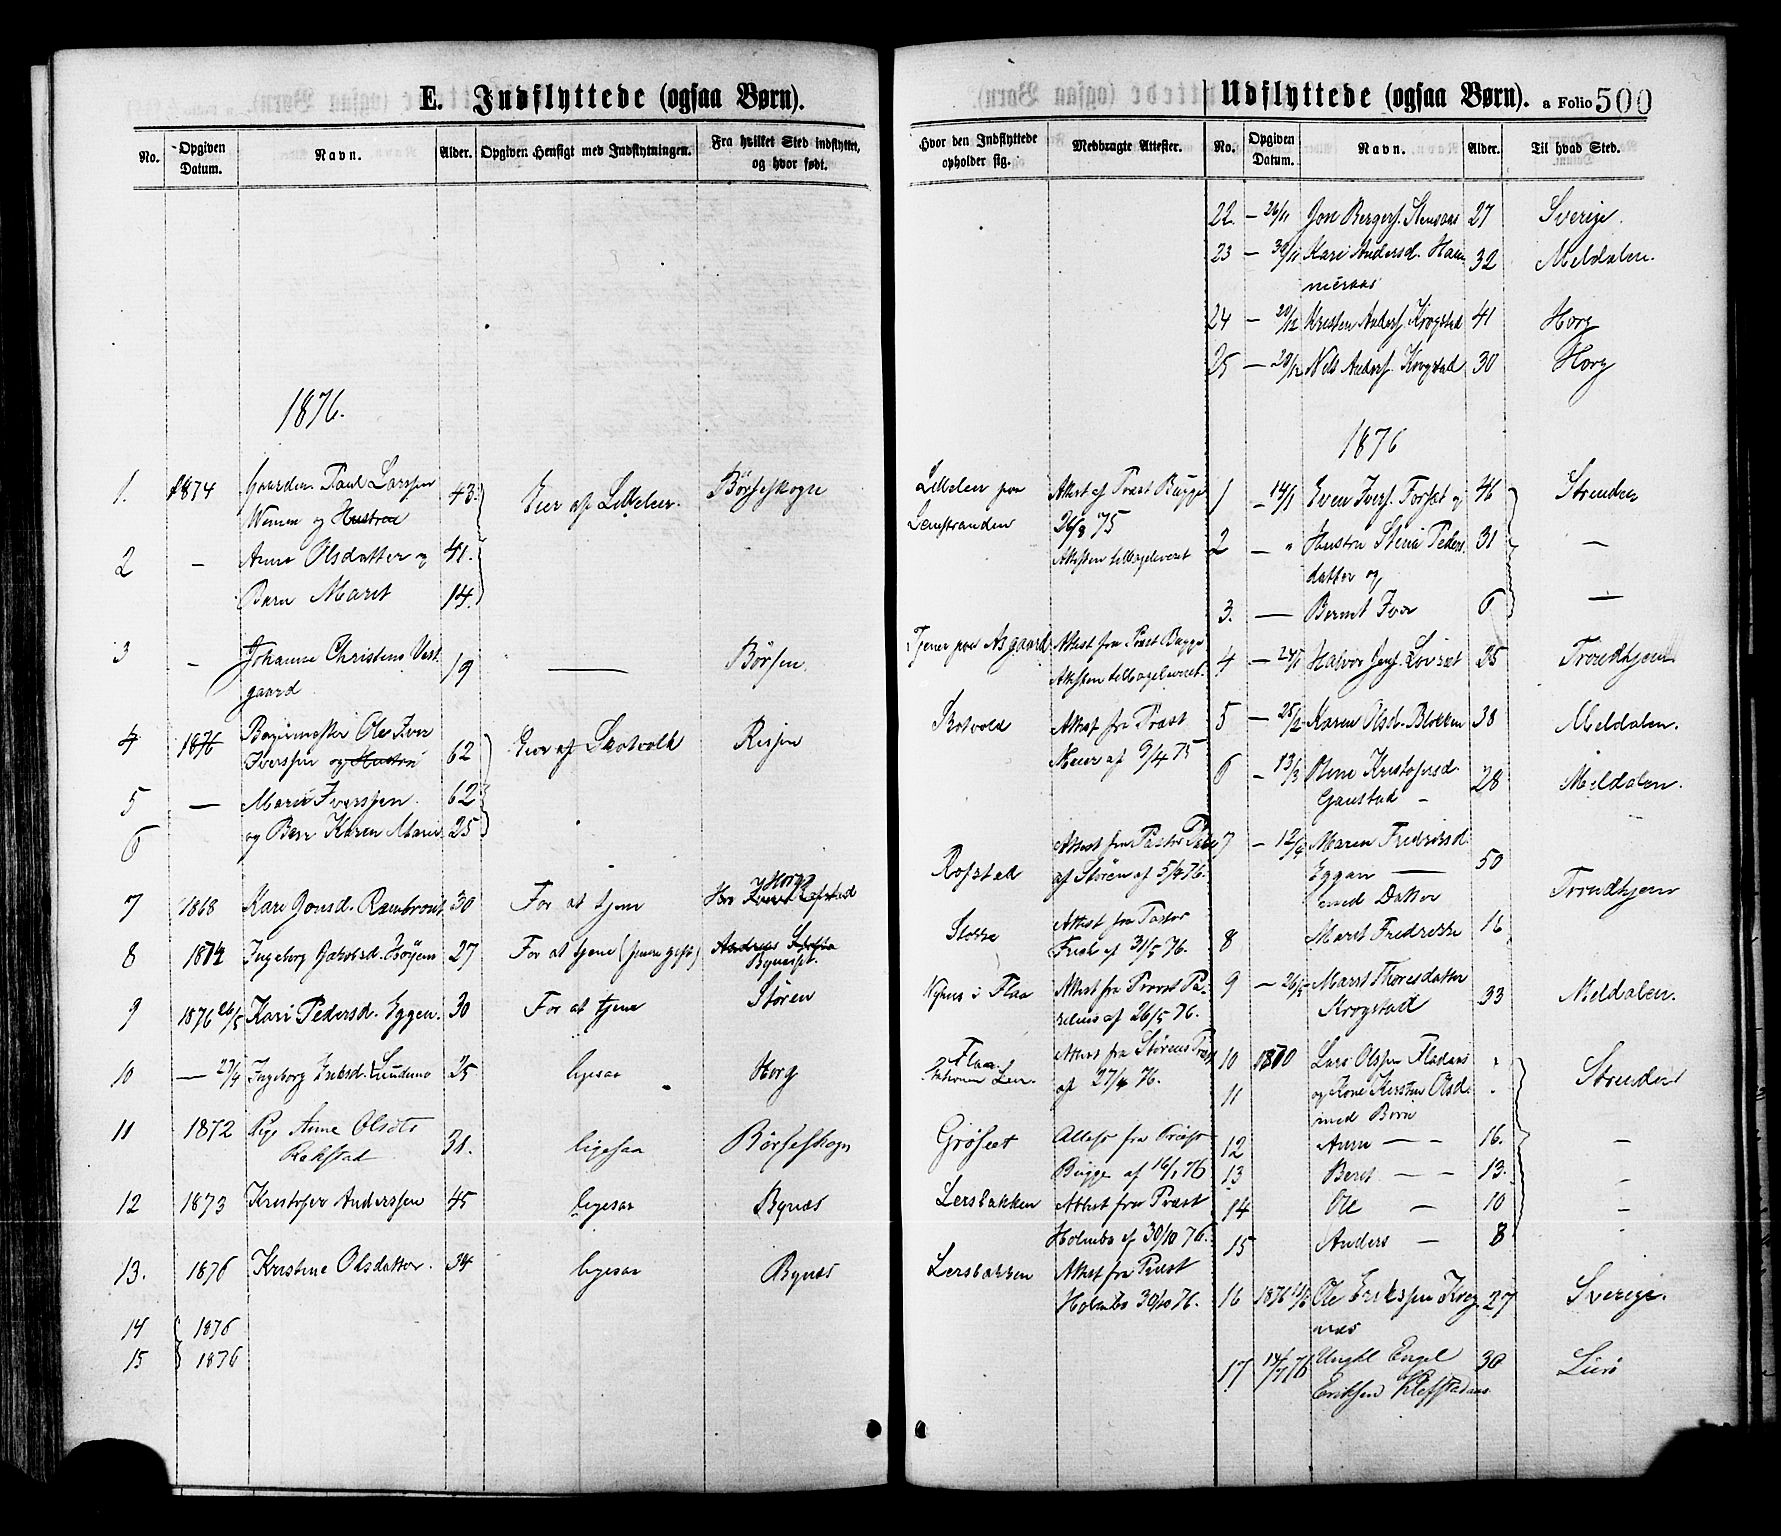 E. Indflyttede (ogsaa Børn).
No.
Opgiven Datum.
Navn.
Alder.
Opgiven Hensigt med Indflytningen.
Fra hvilket Sted indflyttet, og hvor født.
1876.
1. 1874 Gaardm. Paul Larssen 43. Eier af Lettelen. Børseskogn
og Hustru
2 — Anne Olsdatter og 41.
Barn Marit 14.
3 — Johanna Christens Vest 19 — Børsen.
gaard
4 1876 Ole Iver
Iverssen og Hustru 62 Eier af Skotvold Rissen
5 — Marie Iverssen. 62
6 og Barn Karen Marie 25
7 1868 Kari Jonsd. 30 For at tjene Horg
8 1874 Ingeborg Jakobsd. 27 For at tjene
9 1876 26/5 Kari Pedersd. Eggen. 30 For at tjene Støren
10 — 27/4 Ingeborg 25 ligesaa Horg
11 1872 Pige Anne Olsdtr 31. ligesaa Børseskogn
Rakstad
12 1873 Kristofer Anderssen 45 ligesaa Bynæs
13. 1876 Kristine Olsdatter. 34 ligesaa Bynæs
14 1876
15 1876
Udflyttede (ogsaa Børn). a Folio 500
Hvor den Indflyttede opholder sig.
Medbragte Attester.
No.
Opgiven Datum.
Navn.
Alder.
Til hvad Sted.
22. — 26/11 Jon Bergers. Stensaas 27 Sverige.
23 — 30/11 Kari Andersd. Ham 32 Meldalen.
meraas
24 — 20/12 Kristen Anders. Krogstad 41 Horg
25 — 20/12 Nils Anders. Krogstad 30 Horg
1876
Lettelen paa Attest af Præst Bugge 1 — 14/1 Even Ivers. Forset og 46 Strinden
Leinstranden 26/8 75
Attesten tilbageleveret 2 — " Hustru Peders 31 —
datter og
3. — Bernt Iver 6 —
Tjener paa Asgaard Attest fra Præst Bugge
Attesten tilbageleveret. 4 — 24/1 Halvor Jens. Løvset 25 Trondhjem
Skotvold Attest fra Præst 5 — 28/2 Karen Olsd. Blokken 38 Meldalen.
Meier af 9/4 75 6 — 13/3 Oline Kristofersd. 28 Meldalen.
Gaustad
Rofstad Attest fra Pastor 7 — 12/4 Maren Fredriksd. 50 Trondhjem
af Støren af 5/4 76. Eggan —
med Datter
Attest fra Pastor 8 Marit Fredrikke 16
af 31/5 76.
Nyhus i Flaa Attest fra Provst 9 — 26/5 Marit Thoresdatter 33 Meldalen.
af 26/5 76. Krogstad
Flaa Attest fra Størens 10 1870 Lars Olssen " Strinden
af 27/4 76. 11 og Kone Kirsten Olsd. "
med Børn
Grøset Attest fra Præst 12 Anne — — 16. —
Bugge af 16/1 76 13 Beret — — 13. —
Lersbakken Attest fra Præst 14 Ole — 10 —
Holmbo af 30/10 76. 15 Anders — 8 "
Lersbakken Attest fra Præst
Holmbo 30/10 76. 16 1876 Ole Erikssen Krog 27 Sverige.
næs
17 14/7 76 Ungkl Engel 30
Eriksen